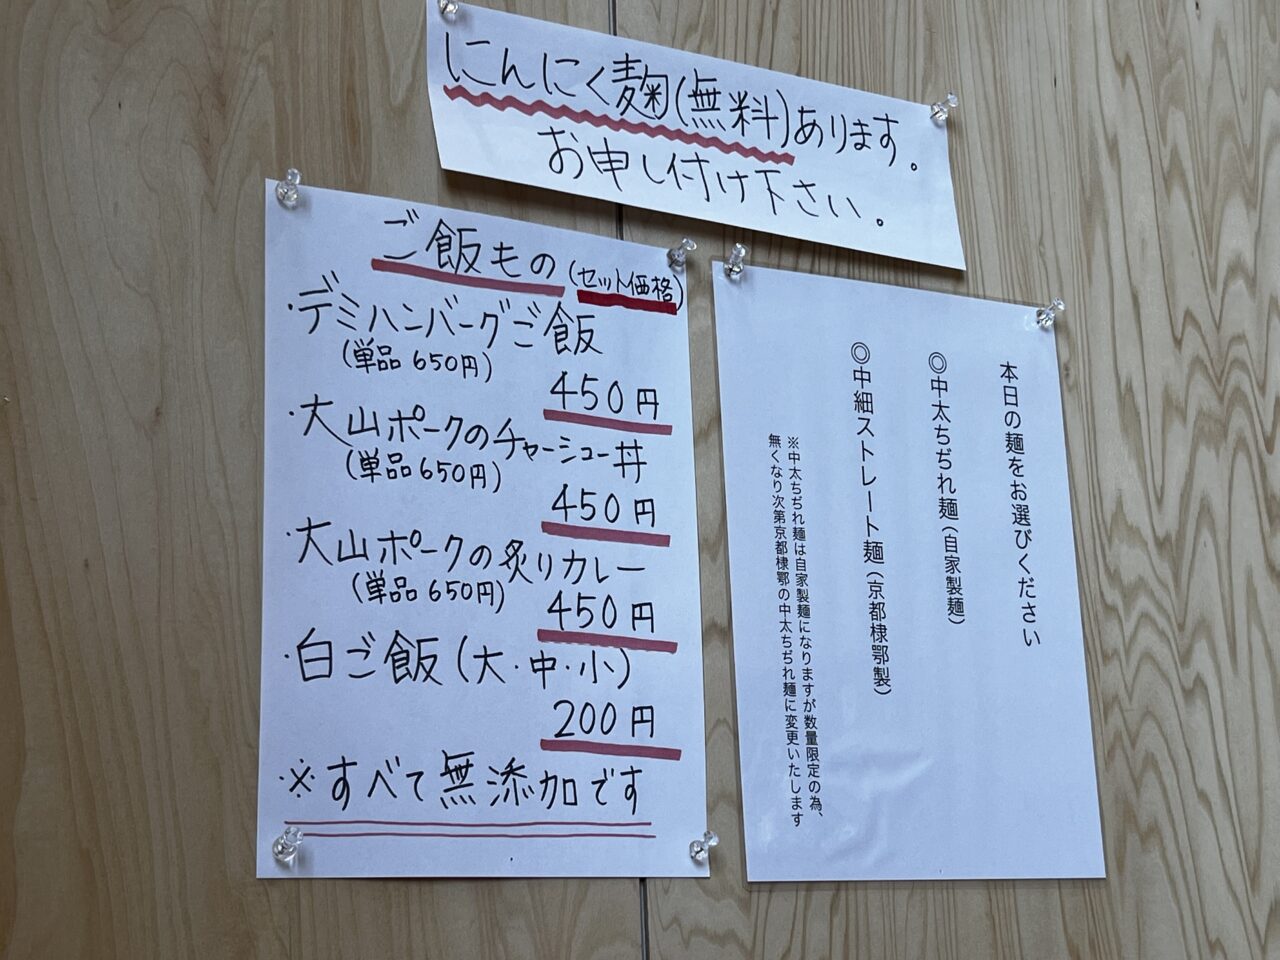 にんにく麹(無料)あります。
お申し付け下さい。
ご飯もの(セット価格)
・デミハンバーグご飯
(単品650円)
450円
・大山ポークのチャーシュー丼
(単品650円)
450円
・大山ポークの炙りカレー
(単品650円)
450円
・白ご飯(大・中・小)
200円
※すべて無添加です
本日の麺をお選びください
◎中太ちぢれ麺(自家製麺)
◎中細ストレート麺(京都棣鄂製)
※中太ちぢれ麺は自家製麺になりますが数量限定の為、
無くなり次第京都棣鄂の中太ちぢれ麺に変更いたします